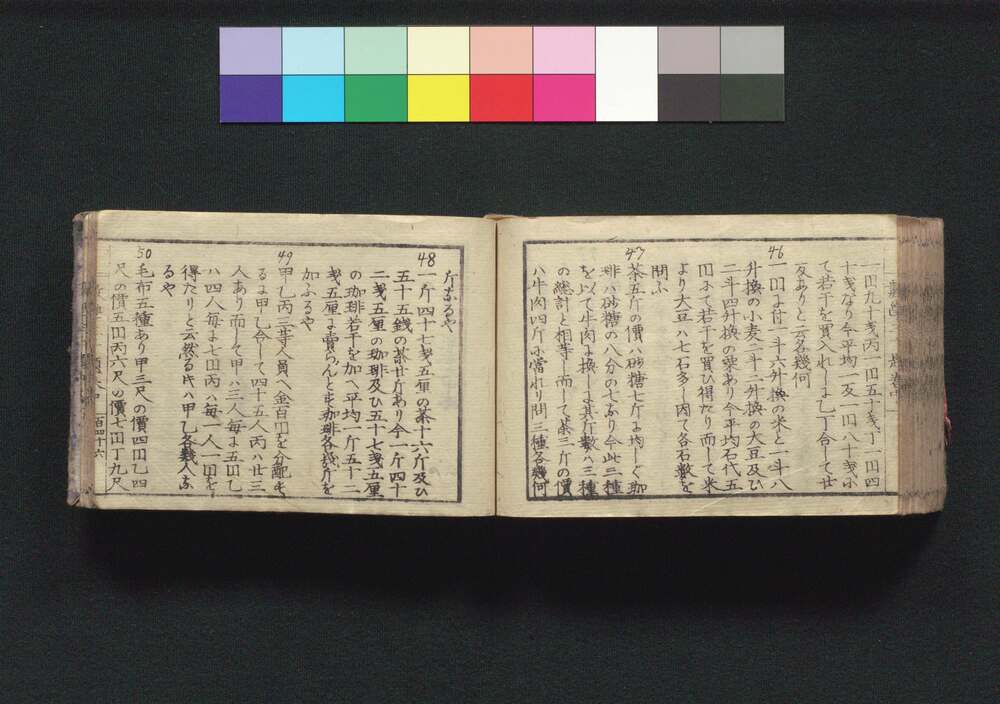 一円九十銭丙一円五十銭丁一円四
十銭なり今平均一反一円八十銭ニ
て若干を買入れしよ乙丁合して廿
反ありと云各幾何
46
一円よ付一斗六升換の米と一斗八
升換の小麦二斗二升換の大豆及ひ
二斗四升換の粟あり今平均石代五
円ニて若干を買ひ得たり而して米
より大豆ハ七石多し因て各石数を
問ふ
47
茶五斤の價ハ砂糖七斤よ均しく珈
琲ハ砂糖の八分の七なり今此三種
を以て牛肉よ換しよ其斤数ハ三種
の総計と相等し而して茶三斤の價
ハ牛肉四斤ニ當れり問三種各幾何
斤なるや
48
一斤四十七銭五厘の茶十六斤及ひ
五十五銭の茶廿斤あり今一斤四十
二銭五厘の珈琲及ひ五十七銭五厘
の珈琲若干を加へ平均一斤五十二
銭五厘よ賣らんとす珈琲各幾斤を
加ふるや
49
甲乙丙三等人員へ金百円を分配す
るよ甲乙合して四十五人丙ハ廿三
人あり而して甲ハ三人毎よ五円乙
ハ四人毎よ七円丙ハ毎一人一円を
得たりと云然る时ハ甲乙各幾人な
るや
50
毛布五種あり甲三尺の價四円乙四
尺の價五円丙六尺の價七円丁九尺
百四十六